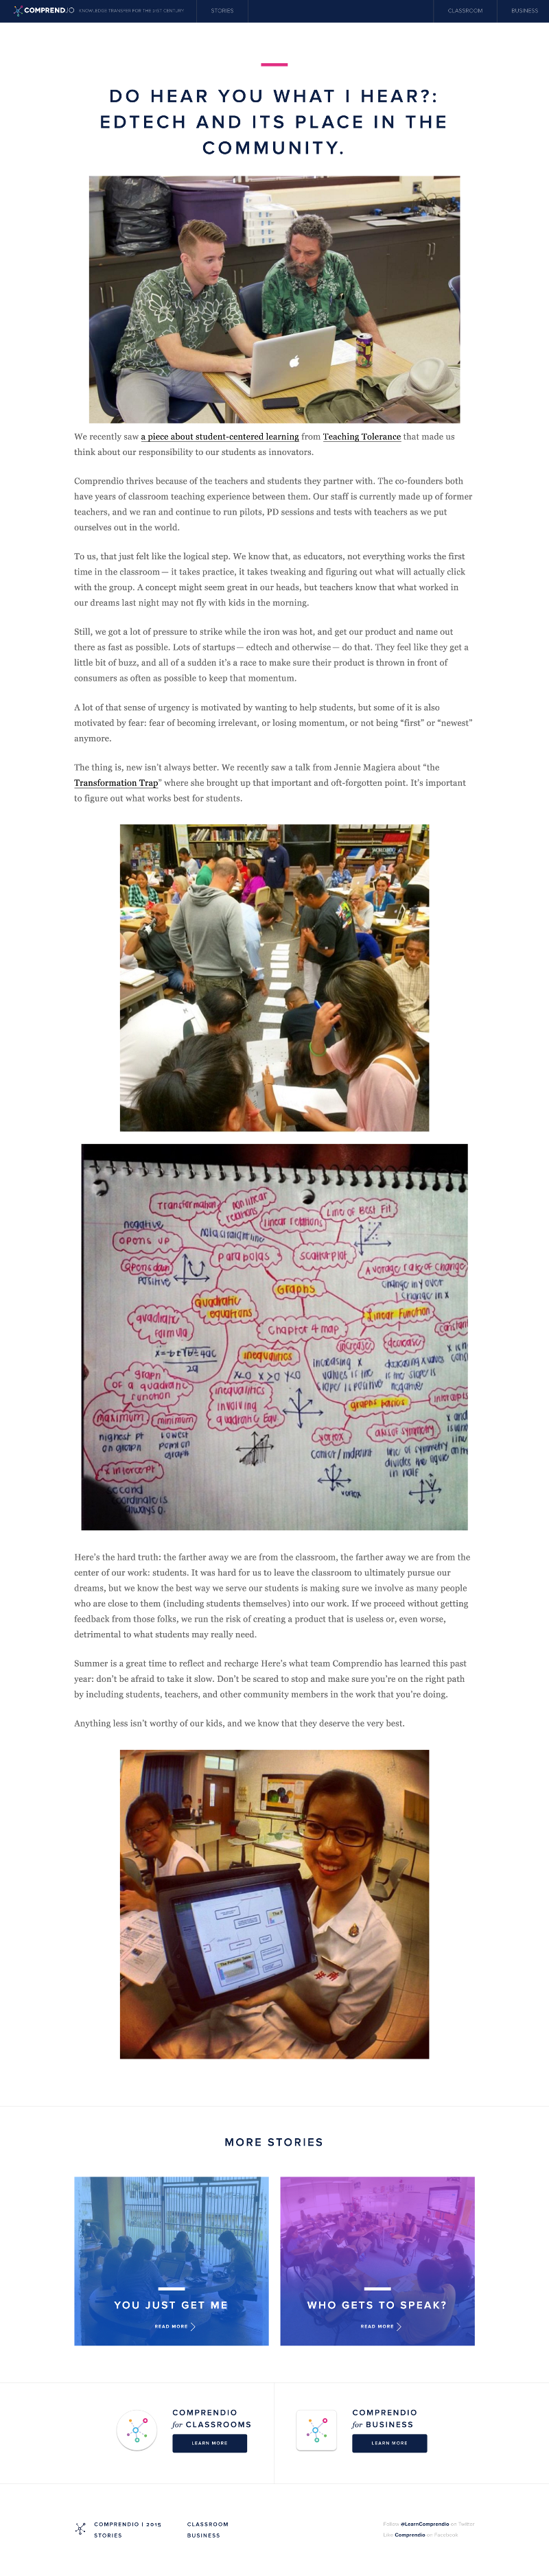 COMPREND.IO KNOWLEDGE TRANSFER FOR THE 21ST CENTURY STORIES CLASSROOM BUSINESS
DO HEAR YOU WHAT I HEAR?:
EDTECH AND ITS PLACE IN THE
COMMUNITY.
We recently saw a piece about student-centered learning from Teaching Tolerance that made us
think about our responsibility to our students as innovators.
Comprendio thrives because of the teachers and students they partner with. The co-founders both
have years of classroom teaching experience between them. Our staff is currently made up of former
teachers, and we ran and continue to run pilots, PD sessions and tests with teachers as we put
ourselves out in the world.
To us, that just felt like the logical step. We know that, as educators, not everything works the first
time in the classroom — it takes practice, it takes tweaking and figuring out what will actually click
with the group. A concept might seem great in our heads, but teachers know that what worked in
our dreams last night may not fly with kids in the morning.
Still, we got a lot of pressure to strike while the iron was hot, and get our product and name out
there as fast as possible. Lots of startups — edtech and otherwise — do that. They feel like they get a
little bit of buzz, and all of a sudden it's a race to make sure their product is thrown in front of
consumers as often as possible to keep that momentum.
A lot of that sense of urgency is motivated by wanting to help students, but some of it is also
motivated by fear: fear of becoming irrelevant, or losing momentum, or not being “first” or “newest”
anymore.
The thing is, new isn't always better. We recently saw a talk from Jennie Magiera about “the
Transformation Trap” where she brought up that important and oft-forgotten point. It's important
to figure out what works best for students.
transformation
nonlinear
relations
linear relations
Line of Best Fit
negative
opens up
not a straight line
parabolas
scatterplot
Average rate of change
opens down
positive
change in y over
change in x
Quadratic
equations
Graphs
Linear Function
quadratic
formula
Chapter 4 map
constant
increase
decrease
inequalities
x<0 x>0 y<0
increasing x
values if the
slope is positive
decreasing values
if the slope is
negative
graph
of a quadratic
function
inequalities
involving
quadratic Equ
graph basics
intercepts
maximum
minimum
vertex
axis of symmetry
highest pt
on graph
lowest
point on
graph
center/midpoint
line of symmetry
divides the figure
in half
x intercept
second
coordinate is
always 0.
Here's the hard truth: the farther away we are from the classroom, the farther away we are from the
center of our work: students. It was hard for us to leave the classroom to ultimately pursue our
dreams, but we know the best way we serve our students is making sure we involve as many people
who are close to them (including students themselves) into our work. If we proceed without getting
feedback from those folks, we run the risk of creating a product that is useless or, even worse,
detrimental to what students may really need.
Summer is a great time to reflect and recharge Here's what team Comprendio has learned this past
year: don't be afraid to take it slow. Don't be scared to stop and make sure you're on the right path
by including students, teachers, and other community members in the work that you're doing.
Anything less isn't worthy of our kids, and we know that they deserve the very best.
MORE STORIES
YOU JUST GET ME
READ MORE
WHO GETS TO SPEAK?
READ MORE
COMPRENDIO
for CLASSROOMS
LEARN MORE
COMPRENDIO
for BUSINESS
LEARN MORE
COMPRENDIO | 2015
STORIES
CLASSROOM
BUSINESS
Follow @LearnComprendio on Twitter
Like Comprendio on Facebook